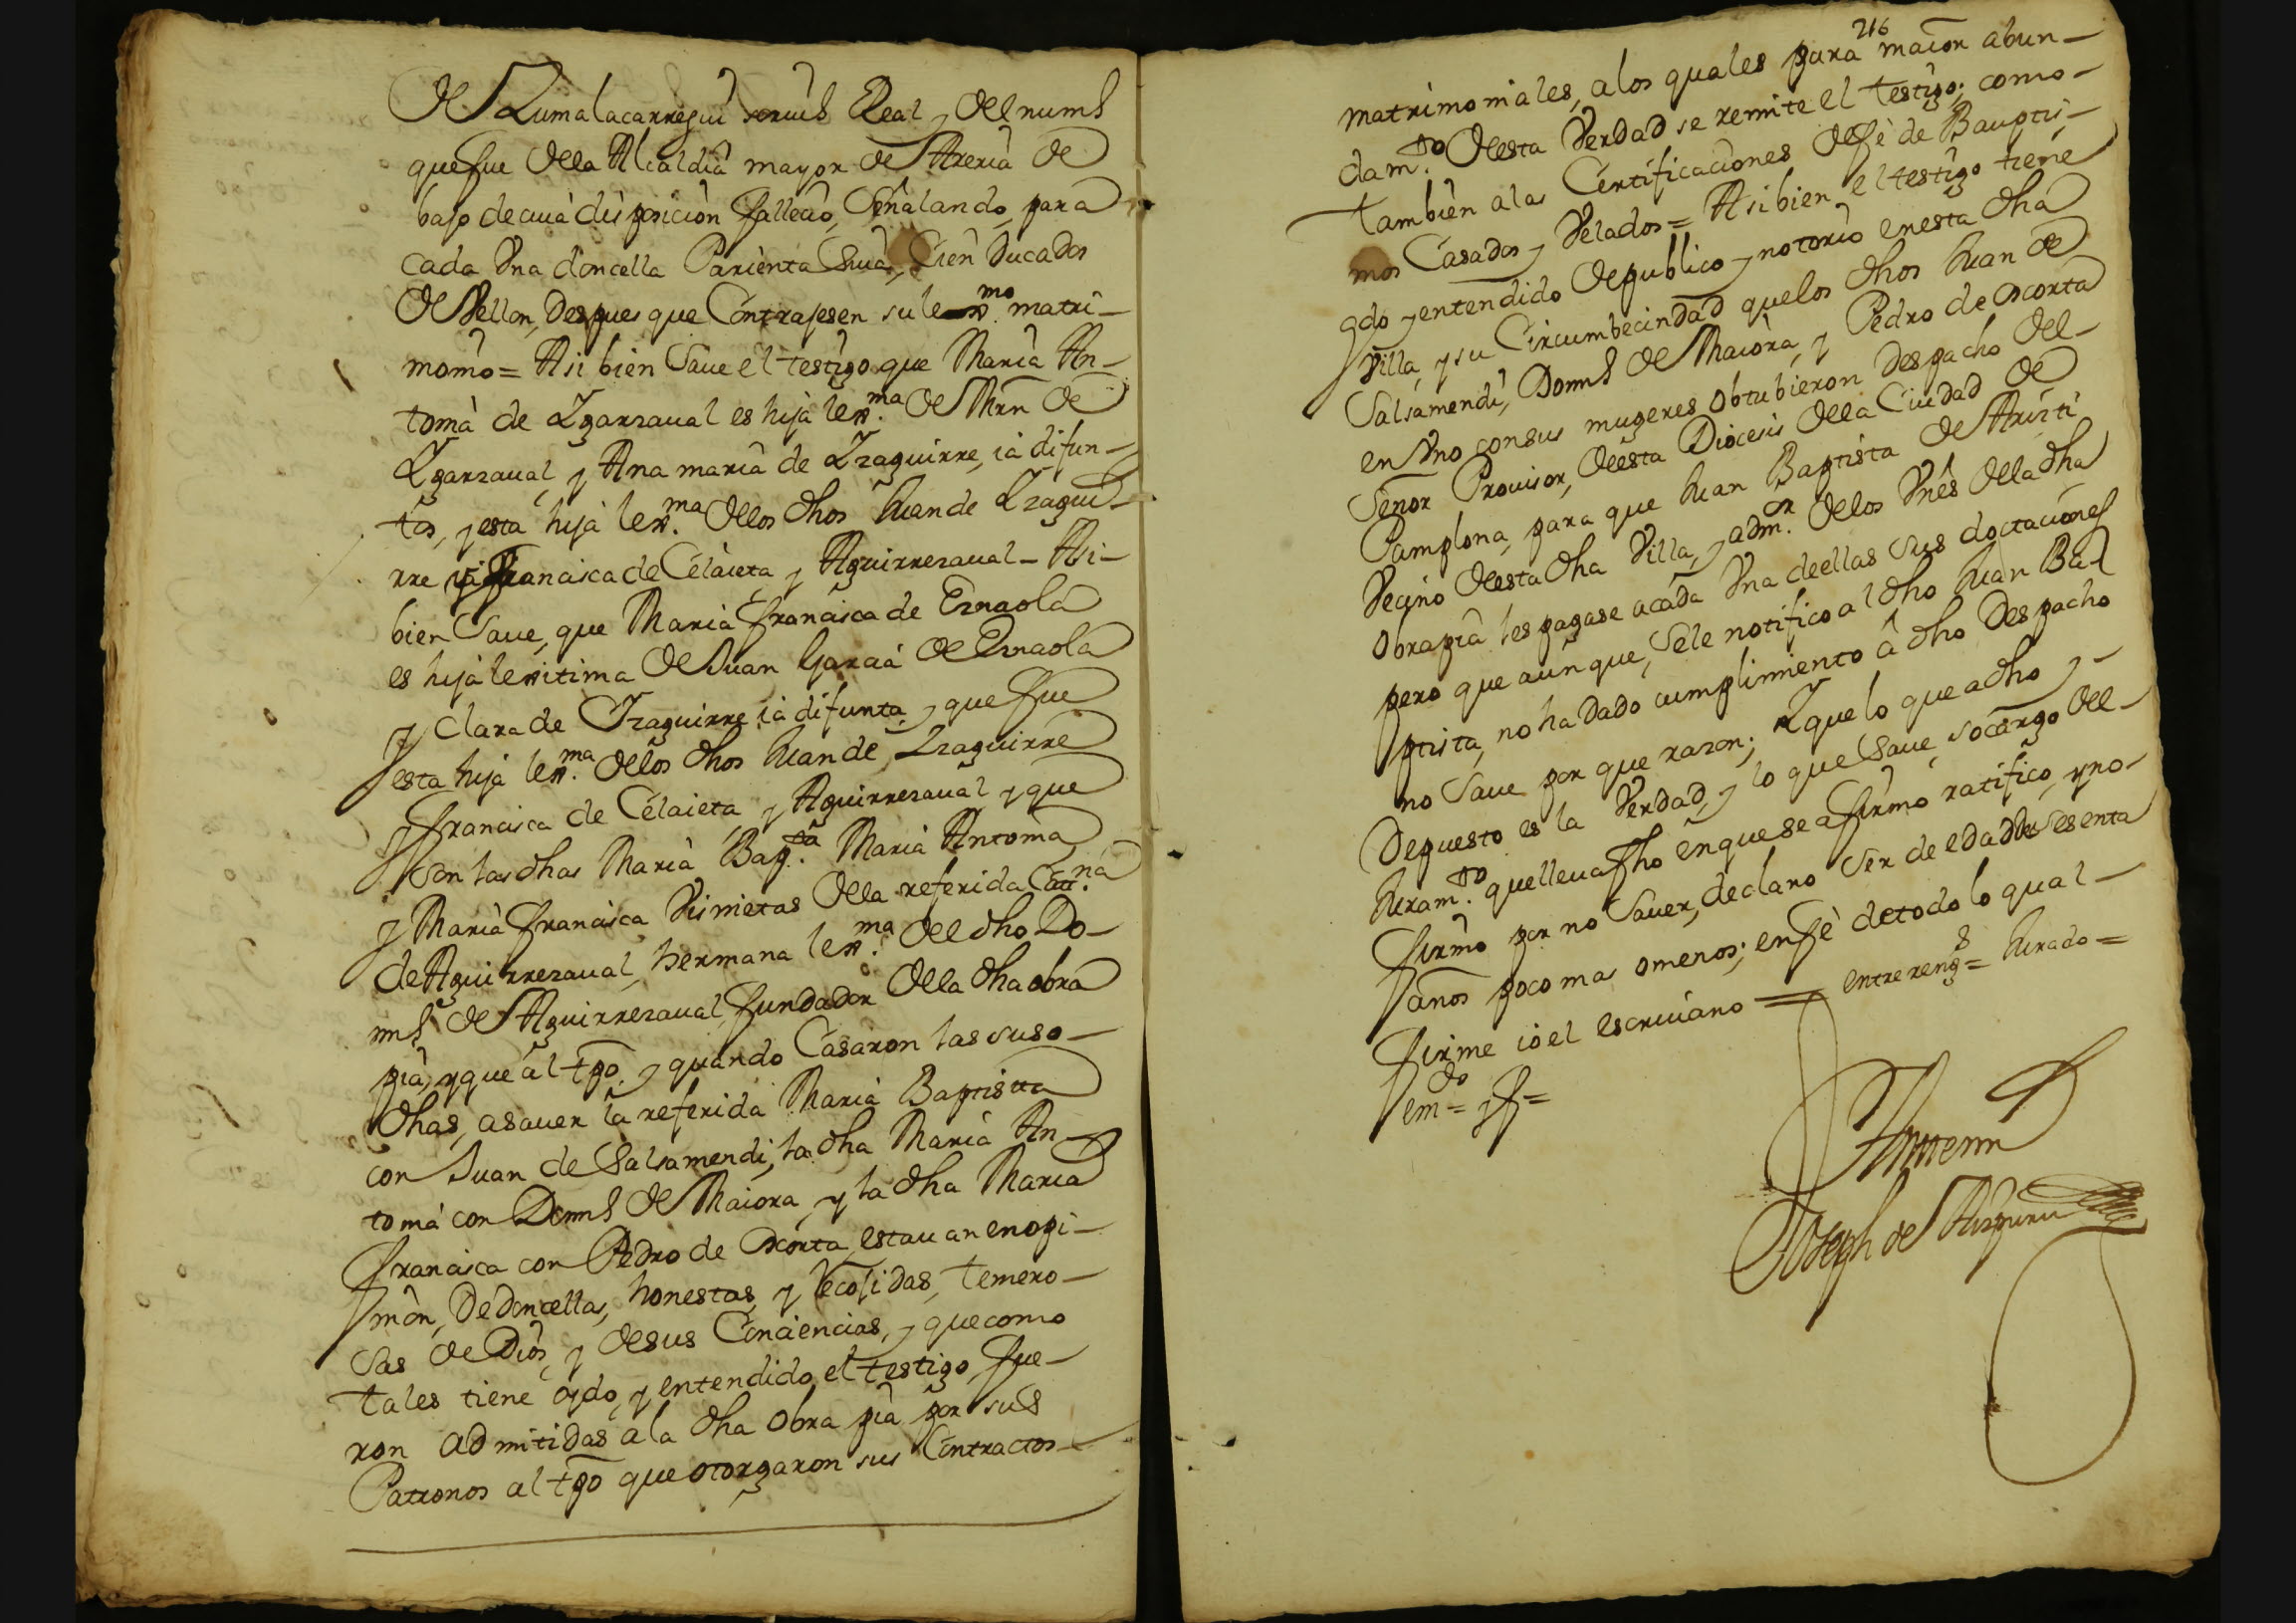 de Zumalacarregui scriu° Real, y del num°
que fue de la Alcaldia mayor de Areria de
bajo de cuia disposicion fallecio, Señalando, para
cada Vna doncella Parienta Suia, Cien Ducados
de Vellon, Despues que Contrajesen su lexmo matri-
monio = Asi bien Saue el testigo que Maria An-
tonia de Ygarzaual es hija lexma de Mrn de
Ygarzaual, y Ana maria de Yzaguirre, ia difun-
tos, y esta hija lexma de los dhos Juan de Yzagui-
rre y Francisca de Celaieta y Aguirrezaual - Asi-
bien Saue, que Maria francisca de Ernaola
es hija lexitima de Juan Garcia de Ernaola
y Clara de Yzaguirre ia difunta, y que fue
esta hija lexma de los dhos Juan de Yzaguirre
y francisca de Celaieta y Aguirrezaual y que
son las dhas Maria Bapta Maria Antonia
y Maria francisca Visnietas de la referida Cana
de Aguirrezaual, hermana lexma del dho Do-
min° de Aguirrezaual fundador de la dha obra
pia, y que al tpo, y quando Casaron las suso-
dhas, asauer la referida Maria Baptista
con Juan de Salsamendi, la dha Maria An-
tonia con Domn° de Maiora, y la dha Maria
francisca con Pedro de Oxorta, estauan en opi-
nion, De doncellas, honestas, y Recojidas, temero-
sas de Dios, y de sus Conciencias, y que como
tales tiene oydo, y entendido, el testigo, fue-
ron admitidas a la dha obra pia por sus
Patronos al tpo que otorgaron sus Contractos
216
matrimoniales, a los quales para maior abun-
damto de esta Verdad se remite el testigo; como-
tambien a las Certificaciones de fè de Bauptis-
mos Casados, y Velados = Asi bien el testigo tiene
oydo y entendido de publico y notorio en esta dha
Villa, y su Circumbecindad que los dhos Juan de
Salsamendi, Domn° de Maiora, y Pedro de Oxorta
en Vno con sus mugeres obtubieron Despacho del-
Señor Prouisor, de esta Diocesis de la Ciudad de
Pamplona, para que Juan Baptista de Aristi
Vecino de esta dha Villa, y admor de los Vnes de la dha
obra pia les pagase a cada Vna de ellas sus doctaciones
pero que aunque, Se le notifico al dho Juan Ba-
ptista, no ha dado cumplimiento â dho Despacho
no Saue por que razon; Y que lo que a dho, y-
Depuesto es la Verdad, y lo que Saue, so cargo del-
Juramto que lleua fho en que se afirmo ratifico, y no-
firmo por no Sauer, declaro Ser de edad de Sesenta
años poco mas o menos; en fè de todo lo qual-
firme io el escriuano = entre rengs = Jurado =
emdo = y f =
Ante mi
Joseph de Aizpuru